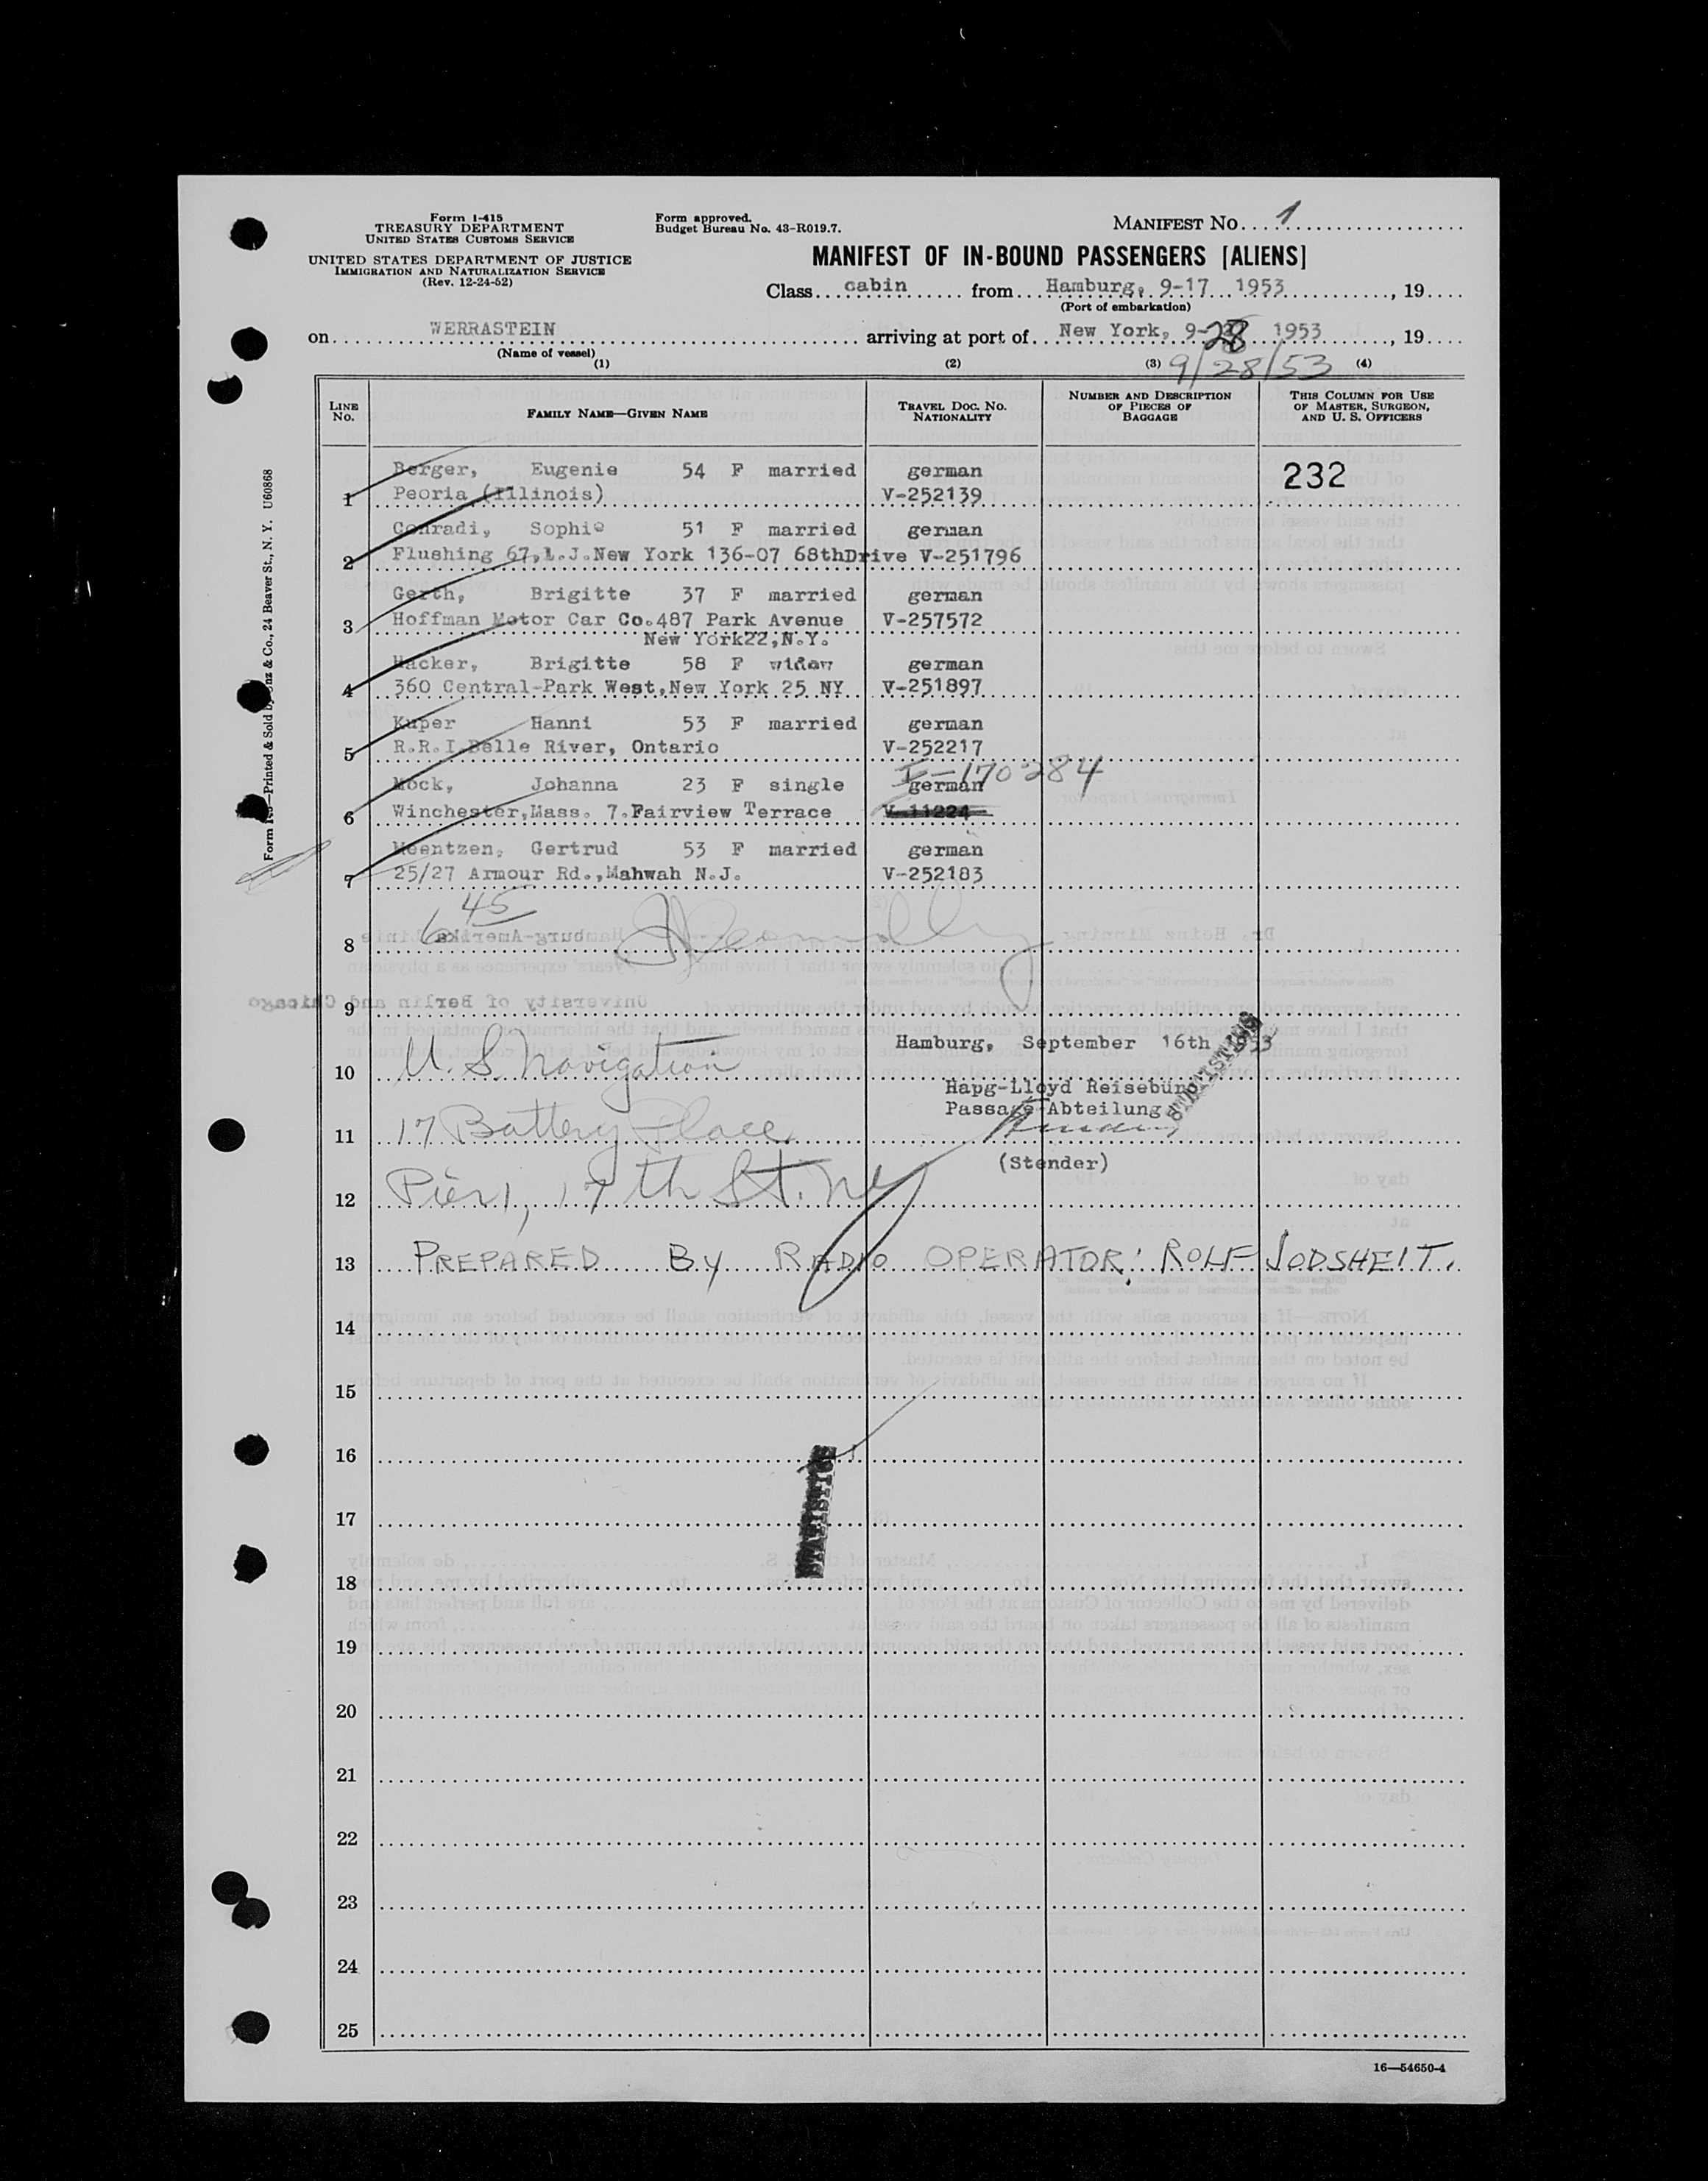 Form I-415
TREASURY DEPARTMENT
UNITED STATES CUSTOMS SERVICE
UNITED STATES DEPARTMENT OF JUSTICE
IMMIGRATION AND NATURALIZATION SERVICE
(Rev. 12-24-52)
Form approved.
Budget Bureau No. 43-R019.7.
MANIFEST NO. 1
MANIFEST OF IN-BOUND PASSENGERS [ALIENS]
Class cabin from Hamburg, 9-17 1953, 19
(Port of embarkation)
on WERRASTEIN arriving at port of New York, 9-28 1953, 19
(Name of vessel)
9/28/53
(1) (2) (3) (4)
LINE NO. FAMILY NAME—GIVEN NAME TRAVEL DOC. NO. NATIONALITY NUMBER AND DESCRIPTION OF PIECES OF BAGGAGE THIS COLUMN FOR USE OF MASTER, SURGEON, AND U. S. OFFICERS
Berger, Eugenie 54 F married german 232
1 Peoria (Illinois) V-252139
Conradi, Sophie 51 F married german
2 Flushing 67,L.J.New York 136-07 68thDrive V-251796
Gerth, Brigitte 37 F married german
3 Hoffman Motor Car Co.487 Park Avenue V-257572
New York22,N.Y.
Hacker, Brigitte 58 F widow german
4 360 Central-Park West,New York 25 NY V-251897
Kuper Hanni 53 F married german
5 R.R.I.Belle River, Ontario V-252217
I-170284
Mock, Johanna 23 F single german
6 Winchester,Mass. 7.Fairview Terrace V-11224
Meentzen, Gertrud 53 F married german
7 25/27 Armour Rd.,Mahwah N.J. V-252183
6 45
8
9
Hamburg, September 16th 1953
10 U. S. Navigation
Hapg-Lloyd Reisebüro
Passage-Abteilung
STATISTICS
11 17 Battery Place
(Stender)
12 Pier 1, 17th St. NY
13 PREPARED BY RADIO OPERATOR: ROLF JODSHEIT.
14
15
16
STATISTICS
17
18
19
20
21
22
23
24
25
16—54650-4